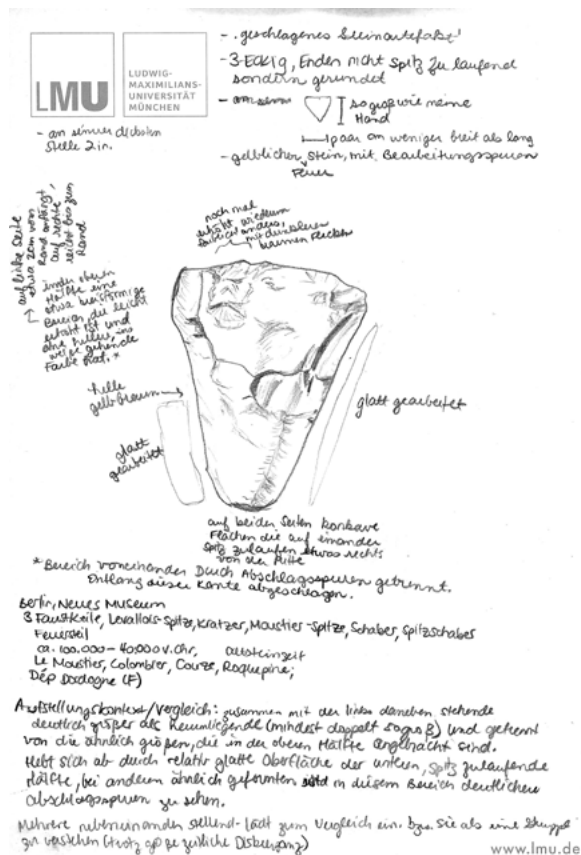 LMU
LUDWIG-
MAXIMILIANS-
UNIVERSITÄT
MÜNCHEN
- an seiner dicksten
Stelle 2in.
- geschlagenes Steinartefakt
- 3-Eckig, Enden nicht spitz zu laufend
sondern gerundet
- so groß wie meine
Hand
paar cm weniger breit als lang
- gelblicher Stein, mit Bearbeitungsspuren
Feuer
auf linke Seite
etwa 2cm vom
Rand anfängt,
auf rechte
reicht bis zum
Rand
in der oberen
Hälfte eine
etwa
Bereich, die leicht
erhöht ist und
eine hellere, ins
weiße gehende
Farbe hat. *
noch mal
erhöht wiederum
farblich anders,
mit dunkleren
braunen Flecken
helle
gelbbraun
glatt
gearbeitet
glatt gearbeitet
auf beiden Seiten konkave
Flächen die auf einander
spitz zulaufen etwas rechts
von der Mitte
* Bereich voneinander durch Abschlagsspuren getrennt.
Entlang dieser Kante abgeschlagen.
Berlin, Neues Museum
3 Faustkeile, Levallois-Spitze, Kratzer, Moustier-Spitze, Schaber, Spitzschaber
ca. 100.000 - 40.000 v. Chr, Altsteinzeit
Le Moustier, Colombier, Couze, Roquepine;
Dép Dordogne (F)
Aufstellungskontext/Vergleich: zusammen mit der links daneben stehende
deutlich größer als Herumliegende (mindest doppelt so groß) und getrennt
von die ähnlich großen, die in der oberen Hälfte angebracht sind.
Hebt sich ab durch relativ glatte Oberfläche der untern, spitz zulaufende
Hälfte, bei anderen ähnlich geformten sind in diesem Bereich deutlichere
Abschlagsspuren zu sehen.
Mehrere nebeneinander stellend - lädt zum Vergleich ein. bzw. sie als eine Gruppe
zu verstehen (trotz große zeitliche Diskrepanz)
www.lmu.de